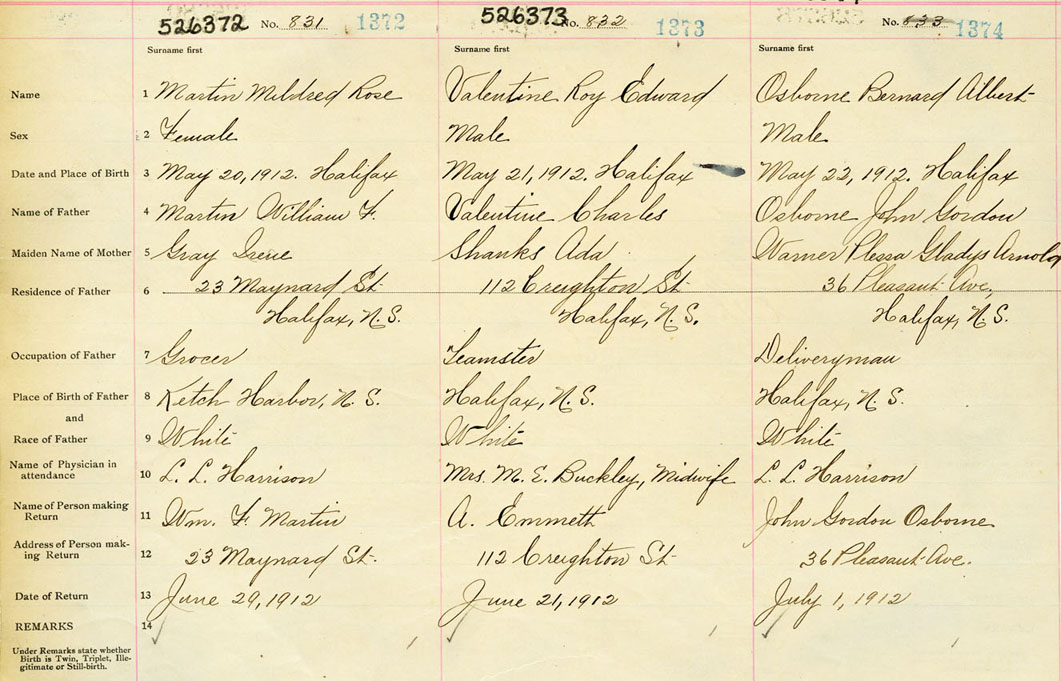 526372 No. 831 1372 526373 No. 832 1373 No. 833 1374
Surname first Surname first Surname first
Name 1 Martin Mildred Rose Valentine Roy Edward Osborne Bernard Albert
Sex 2 Female Male Male
Date and Place of Birth 3 May 20, 1912. Halifax May 21, 1912. Halifax May 22, 1912. Halifax
Name of Father 4 Martin William F. Valentine Charles Osborne John Gordon
Maiden Name of Mother 5 Gray Irene Shanks Ada Warner Plessa Gladys Arnold
Residence of Father 6 23 Maynard St. 112 Creighton St. 36 Pleasant Ave,
Halifax, N.S. Halifax, N.S. Halifax, N.S.
Occupation of Father 7 Grocer Teamster Deliveryman
Place of Birth of Father 8 Ketch Harbor, N.S. Halifax, N.S. Halifax, N.S.
and
Race of Father 9 White White White
Name of Physician in
attendance 10 L. L. Harrison Mrs. M. E. Buckley, Midwife L. L. Harrison
Name of Person making
Return 11 Wm. F. Martin A. Emmeth John Gordon Osborne
Address of Person mak-
ing Return 12 23 Maynard St. 112 Creighton St 36 Pleasant Ave.
Date of Return 13 June 29, 1912 June 21, 1912 July 1, 1912
REMARKS 14
Under Remarks state whether
Birth is Twin, Triplet, Ille-
gitimate or Still-birth.